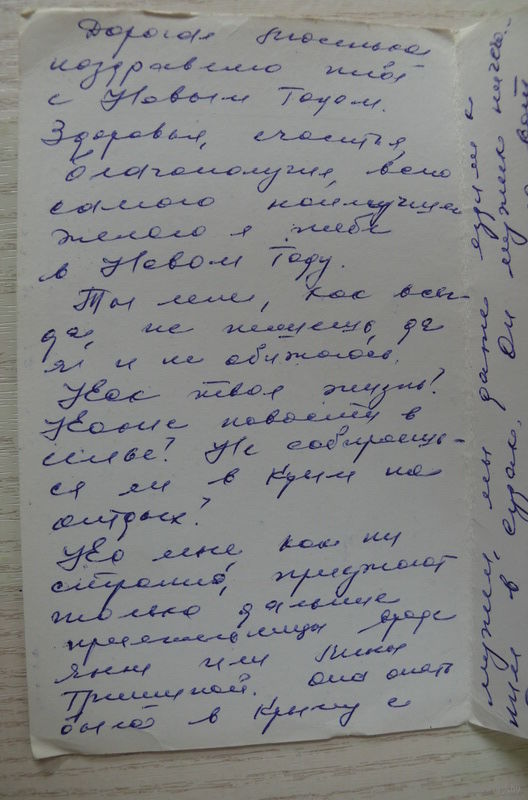 Дорогая
поздравляю тебя
с Новым Годом.
Здоровья, счастья,
благополучия, всего
самого наилучшего
желаю я тебе
в Новом Году.
Ты мне, как всег-
да, не пишешь, да
я и не обижаюсь.
Как твоя жизнь?
Какие новости в
семье? Не собираешь-
ся ли в Крым на
отдых?
Ко мне, как ни
странно, приезжают
только дальние
вроде
Яны или
Тришиной. Она опять
была в Крыму с
мужем, мы даже ездили к
ним в Судак. Он мужик ничего.